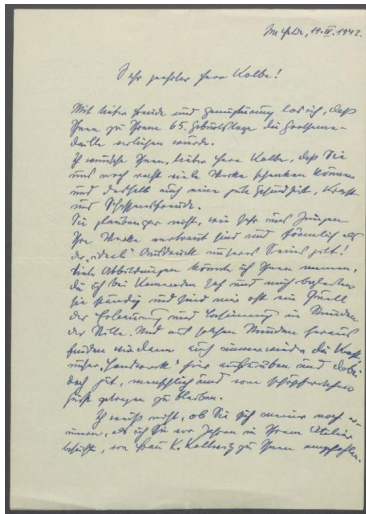 Im Felde, 19. IV. 1942.
Sehr geehrter Herr Kolbe!
Mit tiefer Freude und Genugtuung las ich, daß
Ihnen zu Ihrem 65. Geburtstage die Goethemedaille
verliehen wurde.
Ich wünsche Ihnen, lieber Herr Kolbe, daß Sie
uns noch recht viele Werke schenken können
und deshalb auch eine gute Gesundheit, Kraft
und Schaffensfreude.
Sie glauben gar nicht, wie sehr uns Jungen
Ihre Werke vertraut sind und
der Ausdruck unseres Seins gilt!
Viele Abbildungen könnte ich Ihnen nennen,
die ich bei Kameraden sah und mich begleiten
sie ständig und sind mir oft ein Quell
der Erbauung und Besinnung in Stunden
der Stille. Und aus solchen Stunden heraus
finden wir dann auch immer wieder die Kraft
unser „Handwerk" hier auszuüben und dabei
doch gut, menschlich und vom schöpferischen
Geist getragen zu bleiben.
Ich weiß nicht, ob Sie sich meiner noch erinnern,
als ich Sie vor Jahren in Ihrem Atelier
besuchte, von Frau K. Kollwitz zu Ihnen empfohlen.